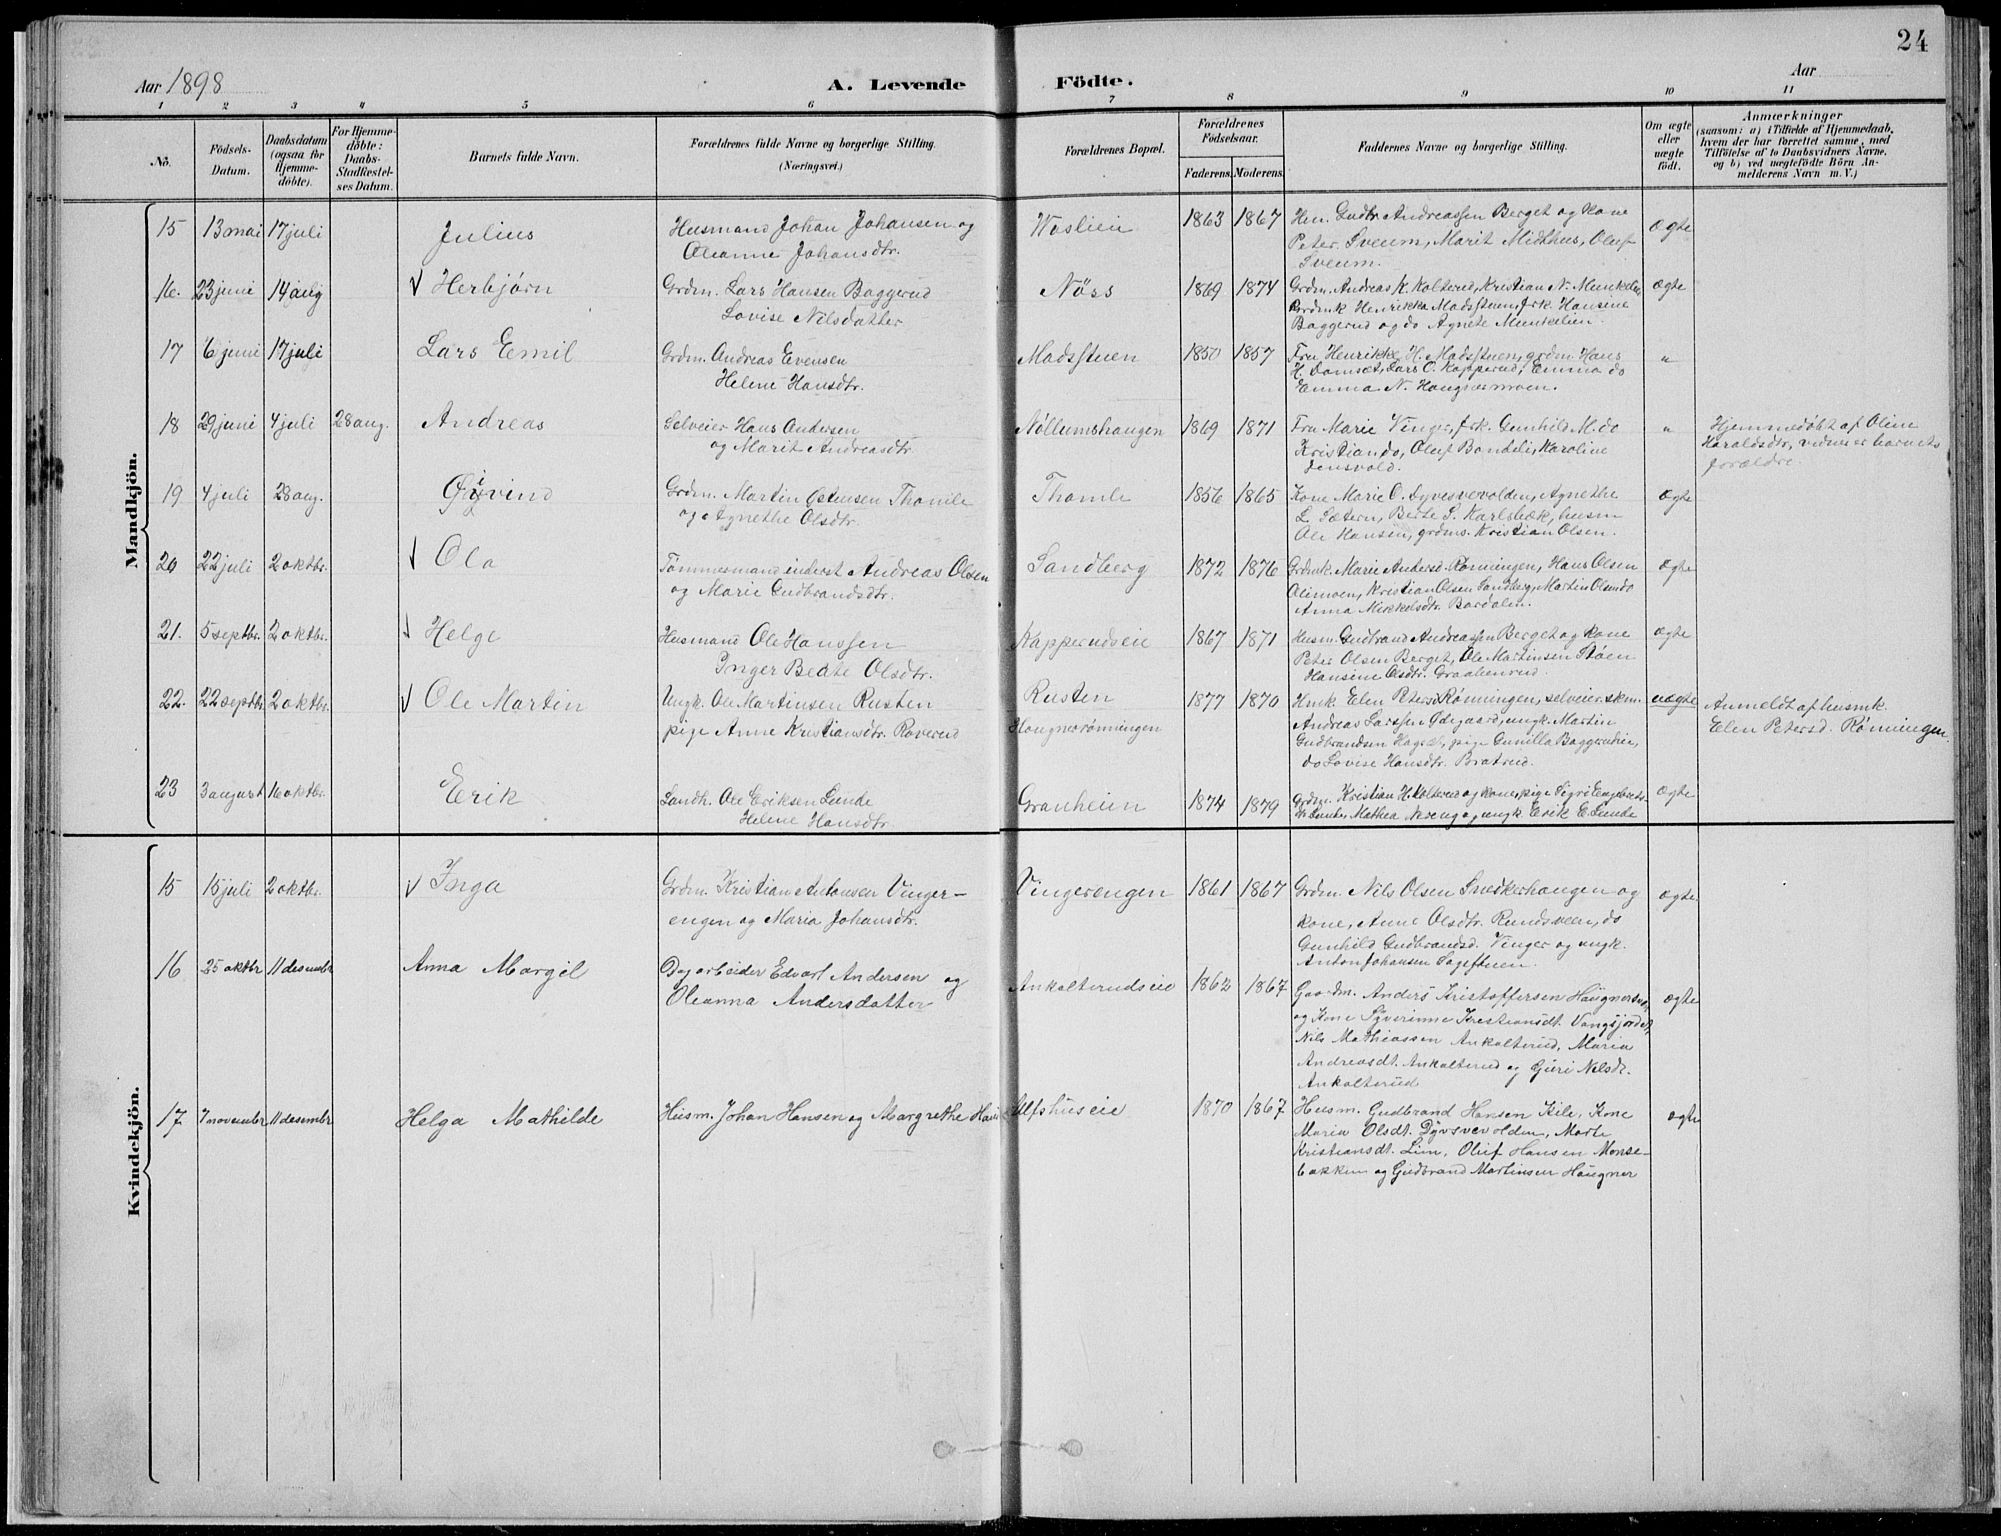 24
Aar 1898
A. Levende
Födte.
Aar
1 2 3 4 5 6 7 8 9 10 11
No.
Födsels-Datum.
Daabsdatum (ogsaa for Hjemme-döbte).
For Hjemme-döbte: Daabs-Stadfæstel-ses Datum.
Barnets fulde Navn.
Forældrenes fulde Navne og borgerlige Stilling.
(Næringsvei.)
Forældrenes Bopæl.
Forældrenes Födselsaar.
Faderens. Moderens.
Faddernes Navne og borgerlige Stilling.
Om ægte eller uægte födt.
Anmærkninger
(saasom: a) i Tilfælde af Hjemmedaab,
hvem der har forrettet samme, med
Tilföielse af to Daabsvidners Navne,
og b) ved uægtefödte Börn An-
melderens Navn m. V.)
Mandkjön.
15 13 mai 17 juli Julius Husmand Johan Johansen og 1863 1867 Hen. Gudbr. Andreassen Berget og kone ægte
Oleanne Johansdtr. Peter Sveum, Marit Midthus, Oluf
Sveum.
16. 23 juni 14 aug √ Herbjørn Grdm. Lars Hansen Baggerud Nöss 1869 1874 Grdm. Andreas K. Kolterud, Kristian N. Munkelien ægte
Lovise Nilsdatter Grdmk Henrikka Madsstuen, frk. Hansine
Baggerud og do Agnete Munkelien.
17 6 juni 17 juli Lars Emil Grdm. Andreas Evensen Madsstuen 1850 1857 Fru Henrikke H. Madsstuen, grdm. Hans "
Helene Hansdtr. H. Damset, Lars O. Kapperud, Emma do
Emma N. Haugnermoen.
18 29 juni 4 juli 28 aug. Andreas Selveier Hans Andersen Nøllumshaugen 1869 1871 Fru Marie Vinger, frk. Gunhild M. do " Hjemmedøbt af Oline
og Marit Andreasdtr. Kristian do, Oluf Bondeli, Karoline Haraldsdtr, vidner barnets
Jensvold. forældre.
19 4 juli 28 aug. Øivind Grdm. Martin Ostensen Thomle Thomle 1856 1865 Kone Marie O. Dyvesvevolden, Agnethe ægte
og Agnethe Olsdtr. L. Sætern, Berte S. Karlsbæk, husm
Ole Hansen, grdms. Kristian Olsen.
20 22 juli 2 oktbr. √ Ola Tømmermand inderst Andreas Olsen Sandberg 1872 1876 Grdmk. Marie Andersd. Rønningen, Hans Olsen ægte
og Marie Gudbrandsdtr. Olimoen, Kristian Olsen Sandberg, Martin Olsen do
Anna Mikkelsdtr. Bardalen.
21. 5 septbr. 2 oktbr. √ Helge Husmand Ole Hanssen Kapperudseie 1867 1871 Husm. Gudbrand Andreassen Berget og kone ægte
Inger Beate Olsdtr. Peter Olsen Berget, Ole Martinsen Støen
Hansine Olsdtr. Graabenrud.
22. 22 septbr. 2 oktbr. √ Ole Martin Ungk. Ole Martinsen Rusten Rusten 1877 1870 Hmk. Elen Petersd Rønningen, selveier skm. uægte Anmeldt af husmk.
pige Anne Kristiansdtr. Røverud Haugnerønningen Andreas Larssen Ødegaard, ungk. Martin Elen Petersd. Rønningen.
Gudbrandsen Hagset, pige Gunilla Baggerudeie,
do Lovise Hansdtr. Bratrud.
23 3 august 16 oktbr. Erik Landh. Ole Eriksen Lunde Granheim 1874 1879 Grdm. Kristian H. Kolterud og kone, pige Sigri Engebrets- ægte
Helene Hansdtr. Mathea og ungk. Erik E. Lunde
Kvindekjön.
15 15 juli 2 oktbr. √ Inga Grdm. Kristian Antonsen Vinger- Vingerengen 1861 1867 Grdm. Nils Olsen Snekkerhaugen og ægte.
engen og Maria Johansdtr. kone, Anne Olsdtr. Rundsveen, do
Gunhild Gudbrandsd. Vinger og ungk.
Anton Johansen Sagestuen.
16 25 oktbr 11 desembr Anna Margit Dagarbeider Edvart Andersen og Ankolterudseie 1862 1867 Gaardm. Anders Kristoffersen Haugnersve, ægte
Oleanna Andersdatter og Kone Syverinne Kristiansdt. Vangsjordet,
Nils Mathiassen Ankolterud, Maria
Andreasdt. Ankolterud og Guri Nilsdt.
Ankolterud
17 7 november 11 desembr Helga Mathilde Husm. Johan Hansen og Margrethe Ulfshuseie 1870 1867 Husm. Gudbrand Hansen Kile, Kone ægte
Maria Olsdt. Dyvsvevolden, Marte
Kristiansdt. Lien, Oluf Hansen Monse-
bakken og Gudbrand Martinsen Haugner